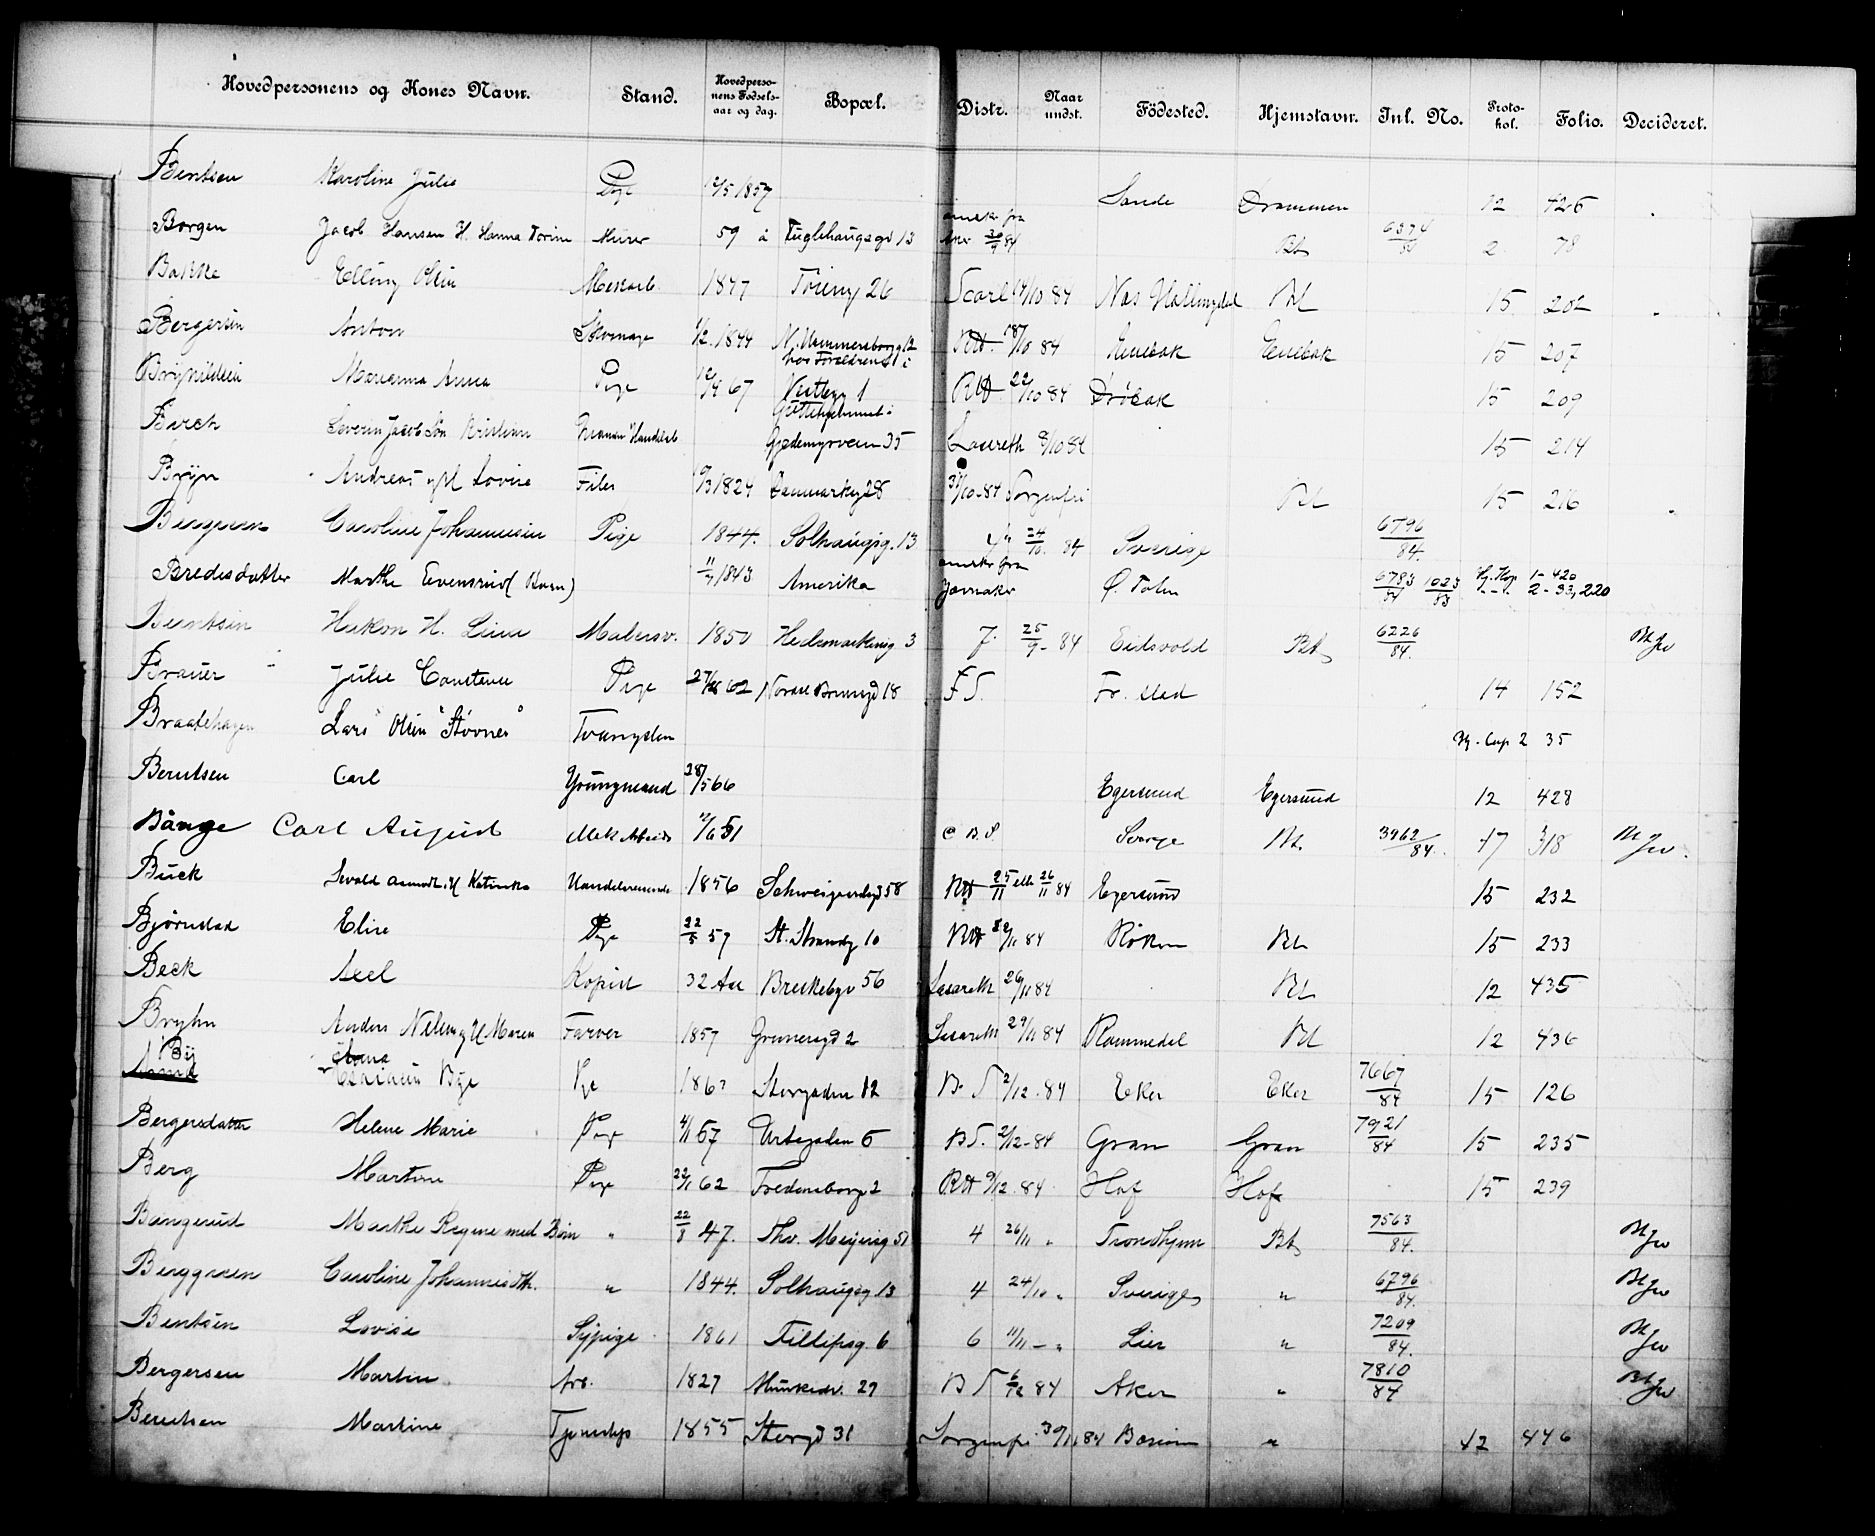 Hovedpersonens og Kones Navn. Stand. Hovedpersonens Fødselsaar og dag. Bopæl. Distr. Naar undst. Födested. Hjemstavn. Inl. No. Protokol. Folio. Decideret.
Bentsen Karoline Julie Pige 12/5 1857 Sande Drammen 12 426
Borgen Jacob Hansen H. Hanna Murer 59 Fuglehaugsgd 13 fra Aker 30/9 84 6374/84 2 78
Bakke Elling Olsen Mekarb. 1847 Töieng 26 14/10 84 Nas Hallingdal 15 202
Bergersen Anton Skomager 1/2 1844 N. Hammersborg 12 Rtt 18/10 84 Enebak Enebak 15 207
Brynildsen Marianna Anna Pige 12/4 67 hos Forældrene i Vestbye 1 Rtt 22/10 84 Dröbak 15 209
Birch Severin Jacob Sön Kristian Handelsb Gjetemyrveien 35 Lasareth 8/10 84 15 214
Bryn Andreas og H Lovise Filer 1824 Danmarksg 28 31/10-84 Sorgenfri 15 216
Berggreen Caroline Johannesen Pige 1844. Solhaugsg. 13 24/10 84 Sverige 6796/84.
Bredesdatter Marthe Evensrud (Barn) 11/7 1843 Amerika fra Jævnaker Ø. Toten 6783/84 1023/83 1-420
2-33,220
Berntsen Hakon H. Line Malersv. 1850 Hedemarkensg 3 7. 25/9- 84 Eidsvold 6226/84.
Brauer Julie Constance Pige 27/12 62 Norbye Brunsgd 18 F S. Fr. stad 14 152
Braatehagen Lars Olsen "Stovner" Tvangslem 2 35
Berntsen Carl Youngmand 28/5 66 Egersund Egersund 12 428
Bånge Carl August Mek Arbeid 12/6 51 C B. S. Sverge 3962/84. 17 318
Buck Sevald Asmund. H Katinka Handelsreisende 1856 Schweigaardsgd 58 Rtt 25/11 elle 26/11 84 Egersund 15 232
Bjørnstad Elise Pige 22/5 57 St. Strandg 10 Rtt 84 Röken 15 233
Beck Axel Kopist 32 Aar Brekkebgv 56 Lasareth 26/11 84 12 435
Bryhn Anders Nilsen og H Maren Farver 1857 Grønnergd 2 Lasareth 29/11 84 Rommedal 12 436
Bÿ Anna Bye Pge 1863 Storgaden 12 B. S 2/12. 84 Eker Eker 7667/84 15 126
Bergersdatter Helene Marie Pige 4/11 67 Urtegaden 6 B S. 2/12-84 Gran Gran 7921/84 15 235
Berg Martine Pige 22/1 62 Fredensborg 2 Rtt 9/12. 84. Hof Hof 15 239
Bangerud Marthe Regine med Børn " 22/8 47. Thv. Meyersg 51 4 26/11 " Trondhjem 7563/84.
Berggreen Caroline Johannesdtr. " 1844. Solhaugsg. 13 4 24/10 " Sverige " 6796/84.
Bentsen Lovise Sypige 1861 Tilllipsg. 6 6 11/11 - " Lier " 7209/84.
Bergersen Martin Arb. 1827 Munkedv. 29 B S 6/12 84 Aker " 7810/84
Berntsen Martine Tjenestep 1855 Storgd 31 Sorgenfri 30/11 84 Bærum " 12 446